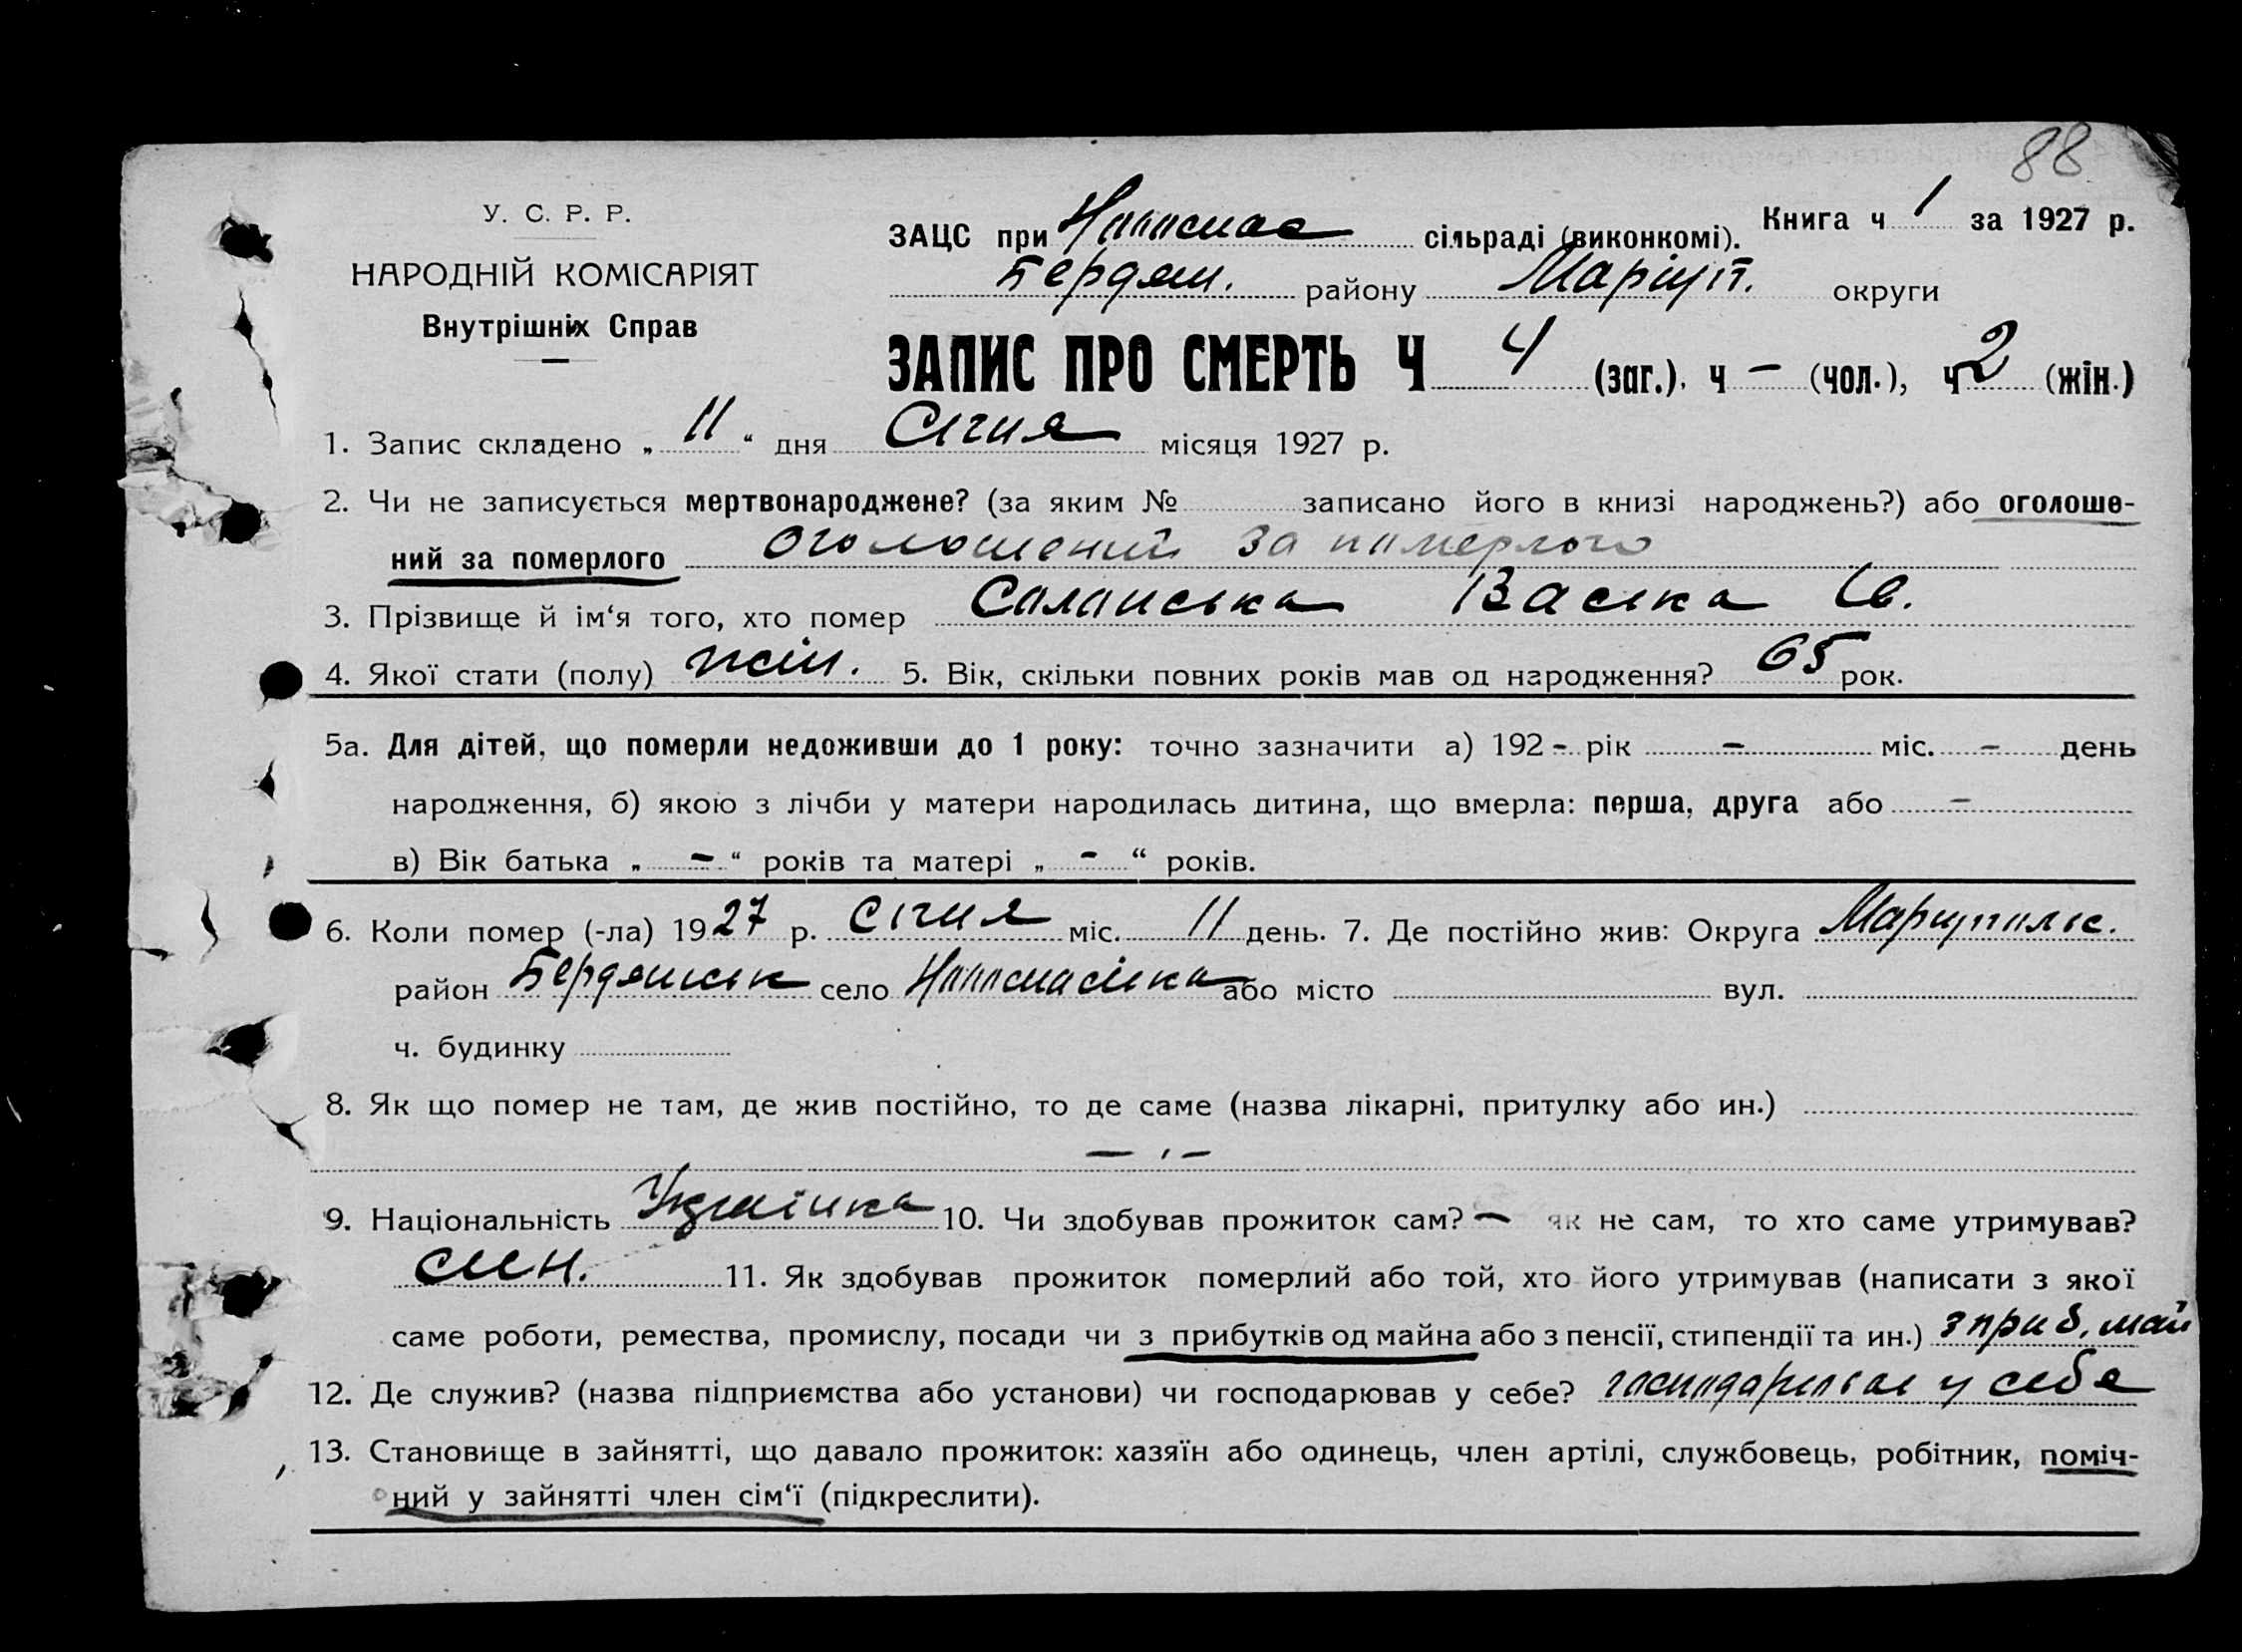 88
У. С. Р. Р.
НАРОДНІЙ КОМІСАРІЯТ
Внутрішніх Справ
ЗАЦС при сільраді (виконкомі). Книга ч 1 за 1927 р.
Бердян. району Маріуп. округи
ЗАПИС ПРО СМЕРТЬ Ч 4 (заг.), ч — (чол.), ч 2 (жін.)
1. Запис складено „ 11 “ дня Січня місяця 1927 р.
2. Чи не записується мертвонароджене? (за яким № записано його в книзі народжень?) або оголоше-
ний за померлого оголошений за померлого
3. Прізвище й ім‘я того, хто помер
4. Якої стати (полу) жін. 5. Вік, скільки повних років мав од народження? 65 рок.
5а. Для дітей, що померли недоживши до 1 року: точно зазначити а) 192 - рік — міс. — день
народження, б) якою з лічби у матери народилась дитина, що вмерла: перша, друга або —
в) Вік батька „ - “ років та матері „ - “ років.
6. Коли помер (-ла) 1927 р. Січня міс. 11 день. 7. Де постійно жив: Округа Маріупольс.
район Бердянськ село або місто вул.
ч. будинку
8. Як що помер не там, де жив постійно, то де саме (назва лікарні, притулку або ин.)
— ‚ —
9. Національність Українка 10. Чи здобував прожиток сам? — як не сам, то хто саме утримував?
син. 11. Як здобував прожиток померлий або той, хто його утримував (написати з якої
саме роботи, ремества, промислу, посади чи з прибутків од майна або з пенсії, стипендії та ин.) з приб. май
12. Де служив? (назва підприємства або установи) чи господарював у себе? у себе
13. Становище в зайнятті, що давало прожиток: хазяїн або одинець, член артілі, службовець, робітник, поміч-
ний у зайнятті член сім‘ї (підкреслити).